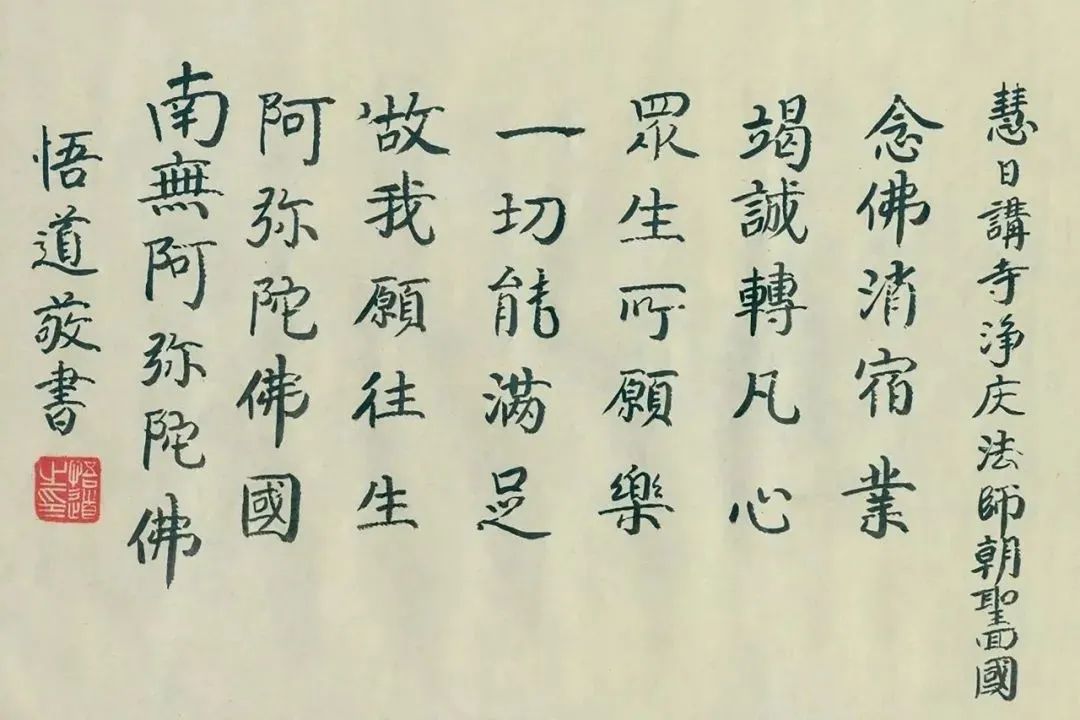 慧日講寺浄庆法師朝聖囬國
念佛消宿業
竭誠轉凡心
眾生所願樂
一切能滿足
故我願往生
阿弥陀佛國
南無阿弥陀佛
悟道敬書
悟道之印